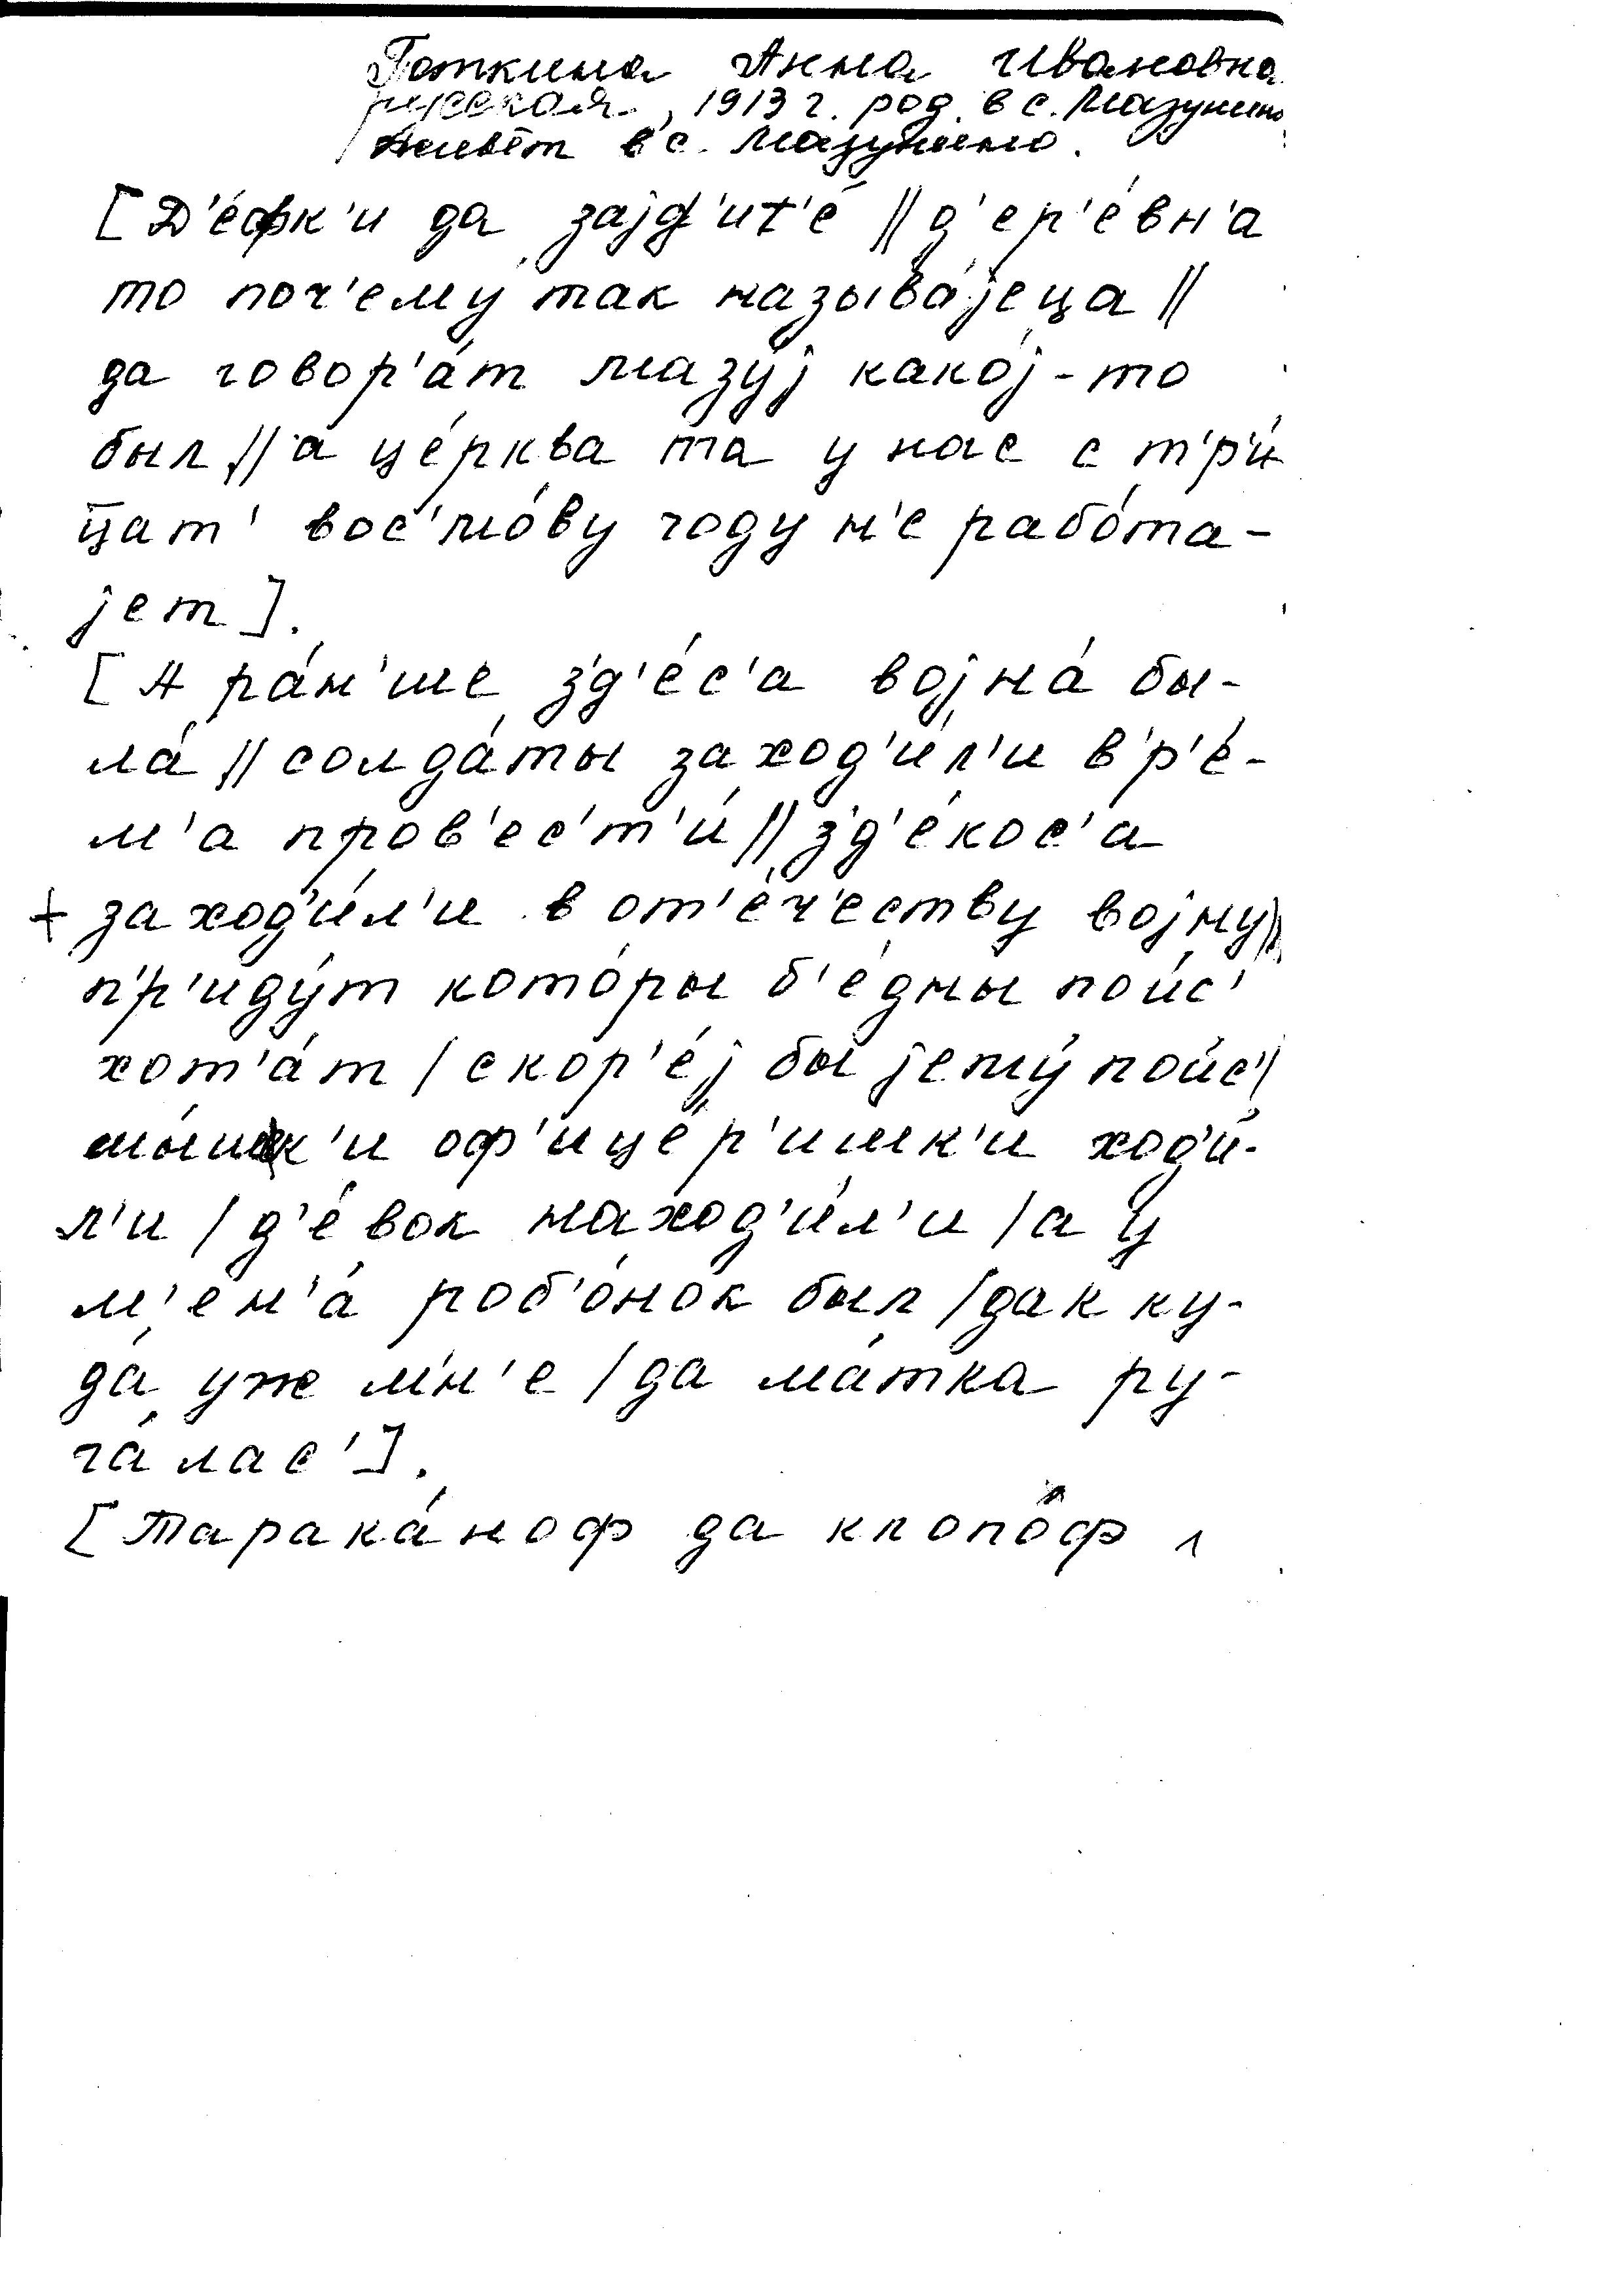 Готкина Анна Ивановна
русская, 1913 г. род. в с. Мазунино
живёт в с. Мазунино.
[Д'е́фк'и да зајд'ит'е́ || д'ер'е́вн'а
то поч'ему́ так называ́јеца ||
да говор'а́т Мазу́ј како́ј-то
был || а це́рква та у нас с т'р'и́
цат' вос'мо́ву году н'е рабо́та-
јет].
[А ра́н'ше з'д'е́с'а војна́ бы-
ла́ || солда́ты заход'и́л'и в'р'е́-
м'а пров'ес'т'и́ || з'д'е́кос'а
+ заход'и́л'и в от'е́ч'еству војну ||
п'р'иду́т кото́ры б'е́дны пои́с'
хот'а́т / скор'е́ј бы јему́ пои́с' /
мы́шк'и оф'ице́р'ишк'и ход'и́-
л'и / д'е́вок наход'и́л'и / а у
м'ен'а́ роб'о́нок был / дак ку-
да́ уже м'н'е / да ма́тка ру-
га́лас'].
[Тарака́ноф да клопо̂ф